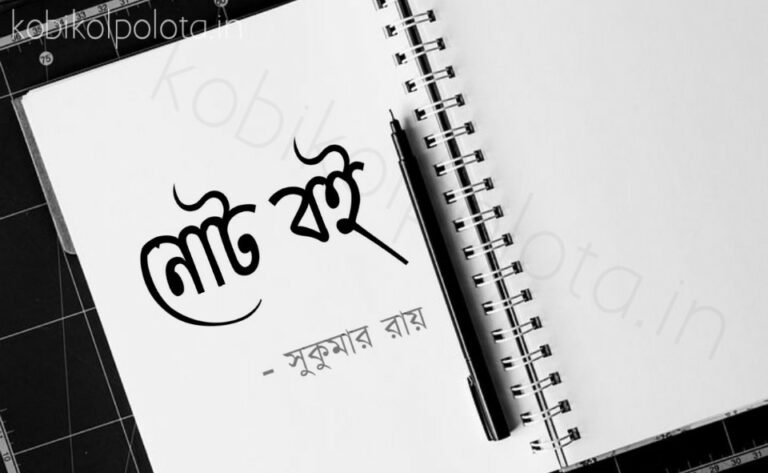 kobikolpolota.in
kobikolpolota.in
নোট বই
- সুকুমার রায়
75
30
31